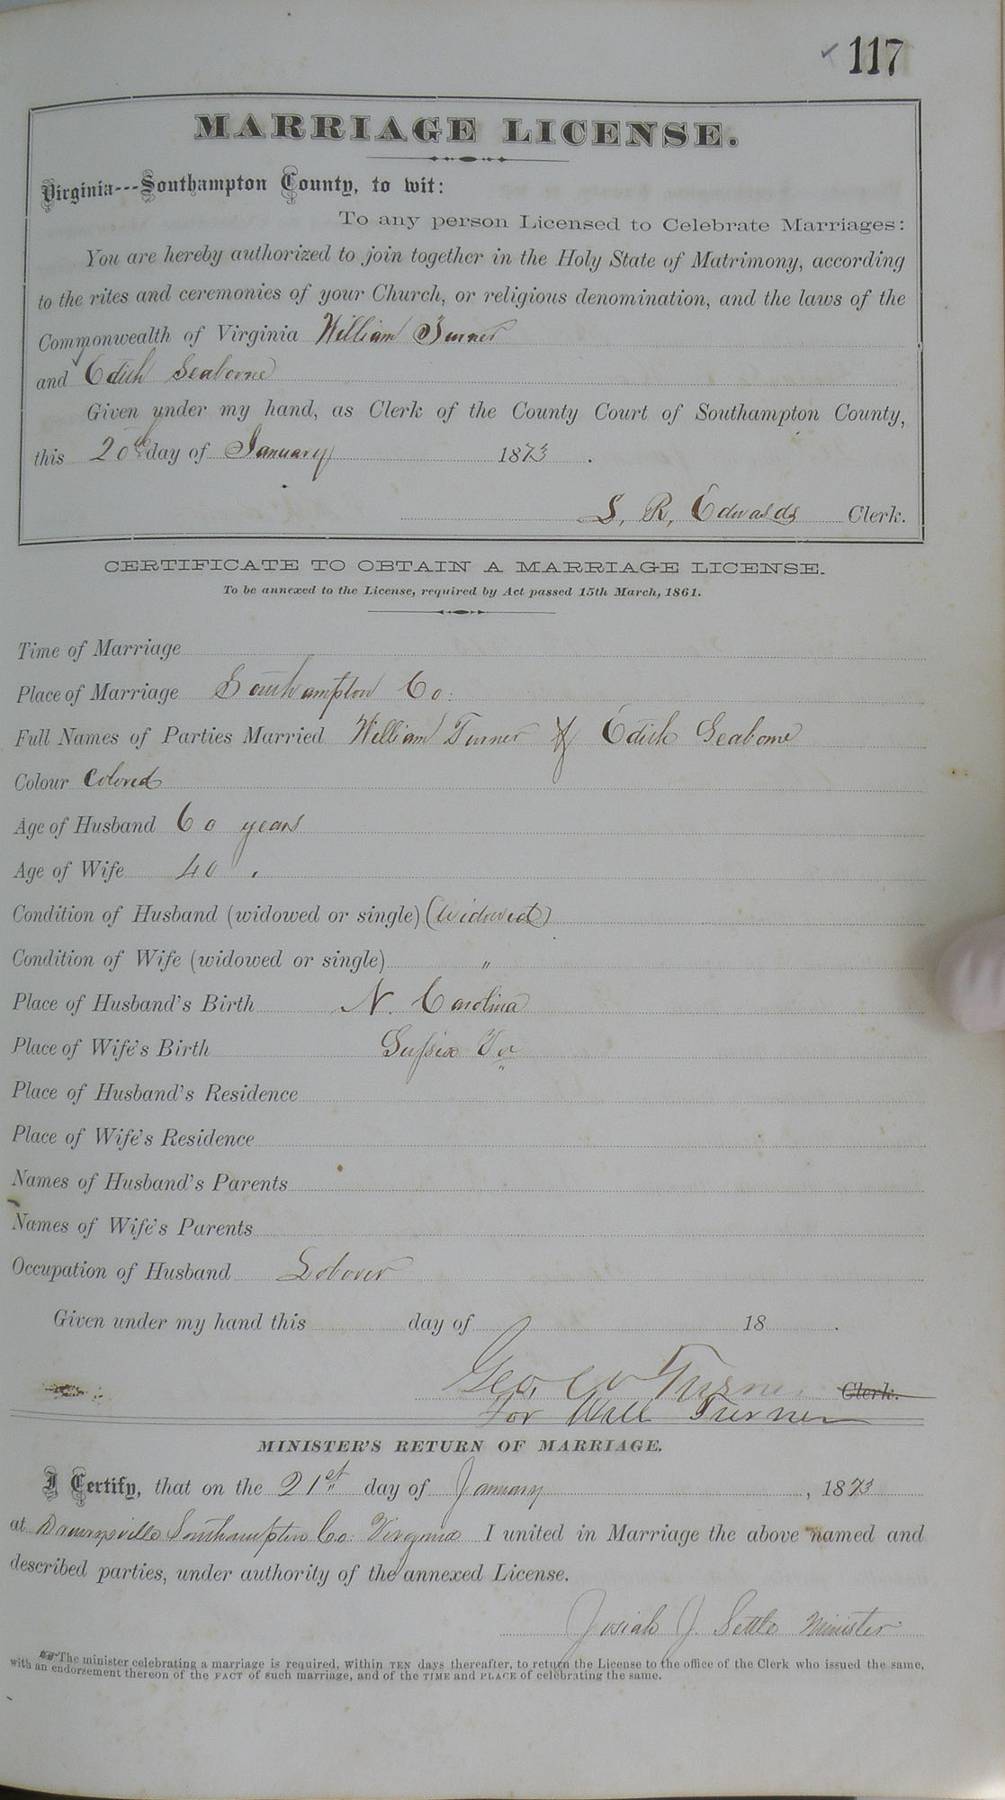 117
MARRIAGE LICENSE.
Virginia---Southampton County, to wit:
To any person Licensed to Celebrate Marriages:
You are hereby authorized to join together in the Holy State of Matrimony, according
to the rites and ceremonies of your Church, or religious denomination, and the laws of the
Commonwealth of Virginia William Turner
and Edith Seaborne
Given under my hand, as Clerk of the County Court of Southampton County,
this 20th day of January 1873.
L. R. Edwards Clerk.
CERTIFICATE TO OBTAIN A MARRIAGE LICENSE.
To be annexed to the License, required by Act passed 15th March, 1861.
Time of Marriage
Place of Marriage Southampton Co.
Full Names of Parties Married William Turner & Edith Seaborne
Colour Colored
Age of Husband 60 years
Age of Wife 40 "
Condition of Husband (widowed or single) (widowed)
Condition of Wife (widowed or single) "
Place of Husband's Birth N. Carolina
Place of Wife's Birth Sussex Va
Place of Husband's Residence
Place of Wife's Residence
Names of Husband's Parents
Names of Wife's Parents
Occupation of Husband Laborer
Given under my hand this day of 18 .
Geo. W Turner Clerk.
For Will Turner
MINISTER'S RETURN OF MARRIAGE.
I Certify, that on the 21st day of January, 1873
at Southampton Co. Virginia I united in Marriage the above named and
described parties, under authority of the annexed License.
Josiah J. Settle Minister
The minister celebrating a marriage is required, within TEN days thereafter, to return the License to the office of the Clerk who issued the same,
with an endorsement thereon of the FACT of such marriage, and of the TIME and PLACE of celebrating the same.